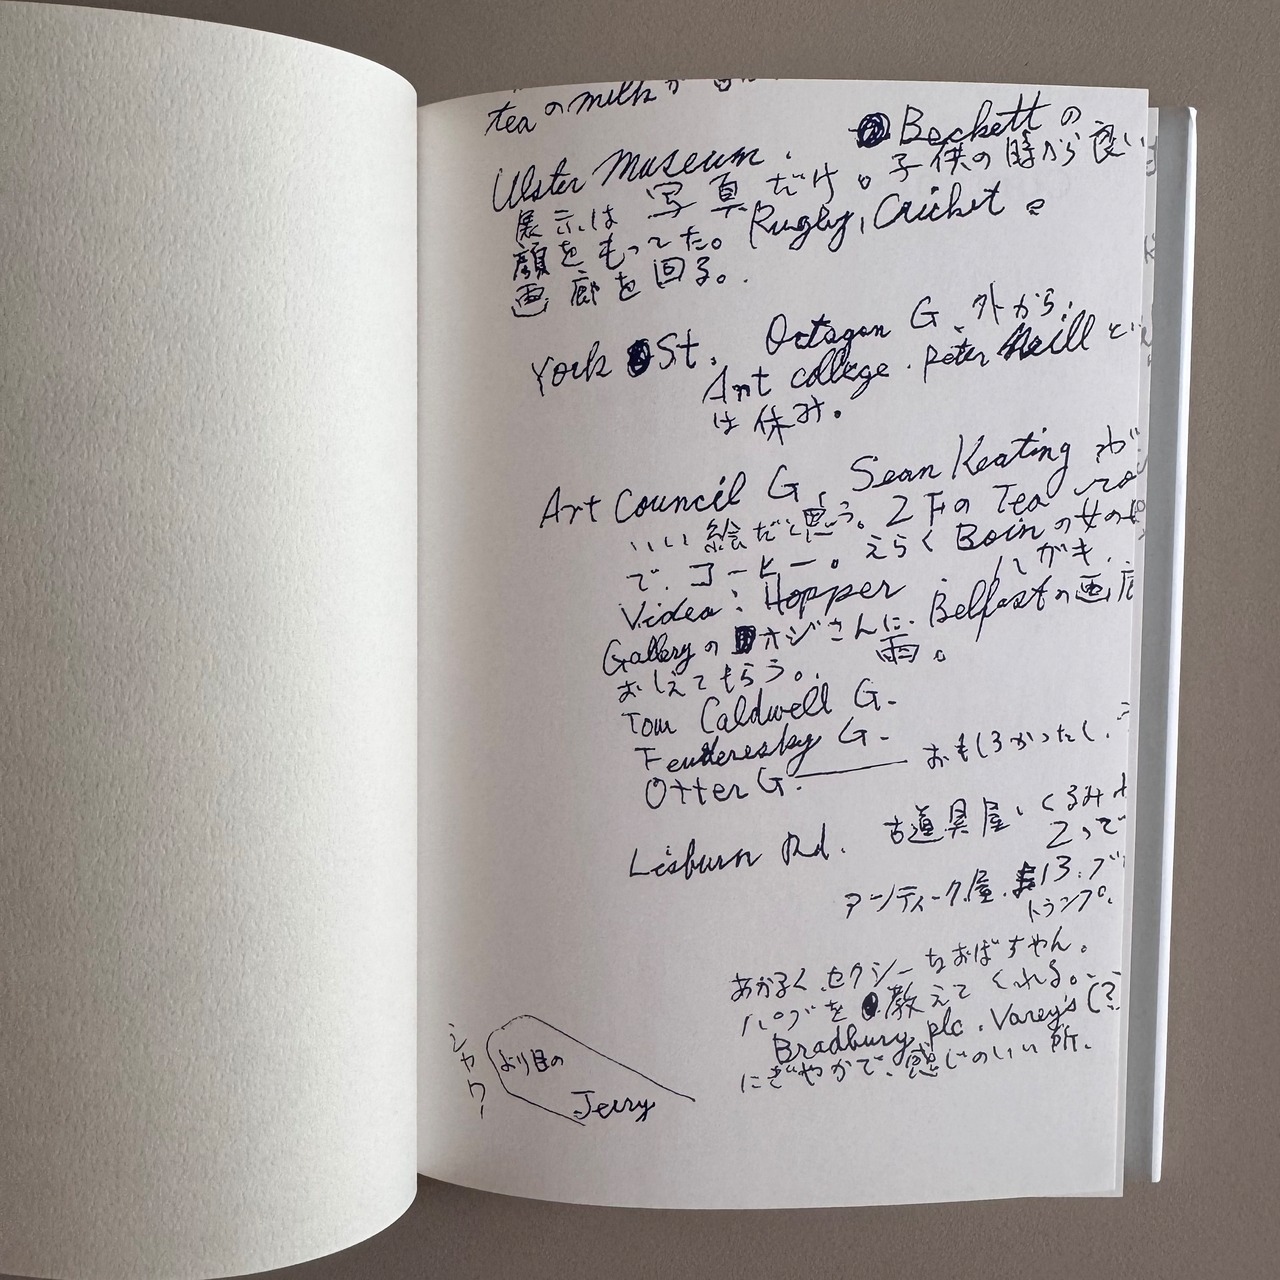 tea の milk が
Ulster Museum. Beckett の
展示は写真だけ。子供の時から良い
顔をもってた。Rugby, Cricket。
画廊を回る。
York St. Octagon G. 外から.
Art college. Peter Neill と
は休み。
Art Council G, Sean Keating が
いい絵だと思う。2Fの Tea roo
で、コーヒー。えらく Boin の女の
Video: Hopper ハガキ.
Gallery の オジさんに. Belfast の画
おしえてもらう。 雨。
Tom Caldwell G.
G.
Otter G. おもしろかったし、
Lisburn Rd. 古道具屋、くるみ
2つで
アンティーク屋. 13.ブ
トランプ。
あかるく、セクシーなおばちゃん。
パブを 教えてくれる。
Bradbury plc. Varey's (?
にぎやかで、感じのいい所.
シャワー
より目の
Jerry